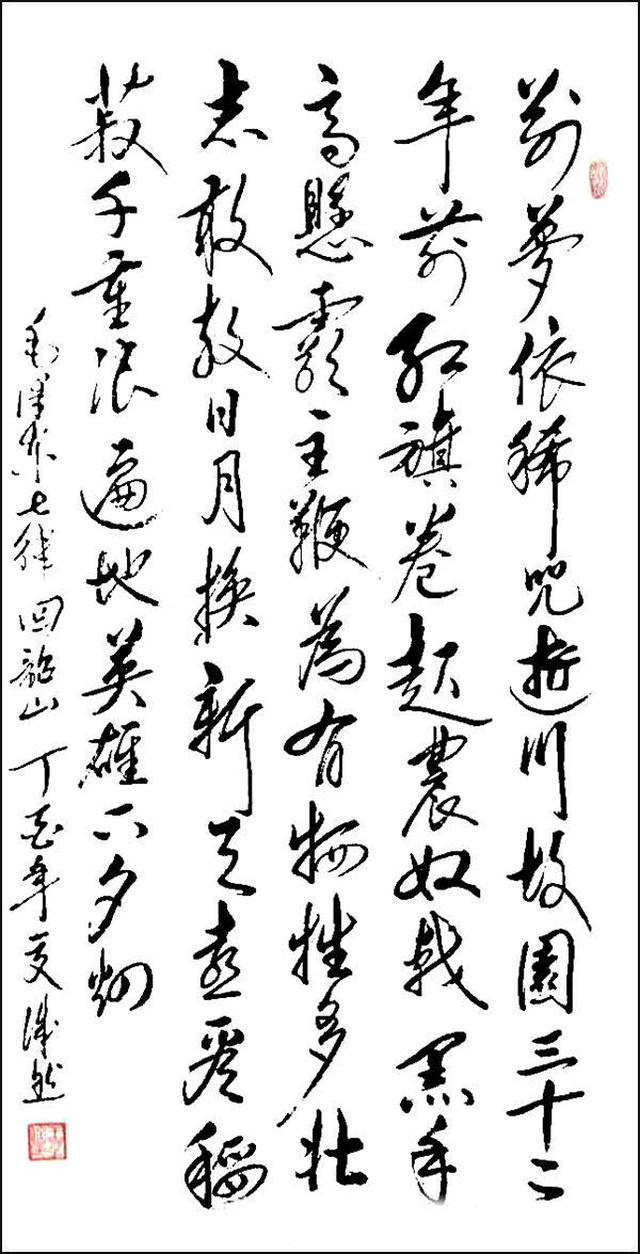 别夢依稀咒逝川故園三十二
年前红旗卷起農奴戟黑手
高懸霸主鞭為有牺牲多壮
志敢教日月换新天喜看稻
菽千重浪遍地英雄下夕烟
毛泽东七律回韶山丁酉年夏